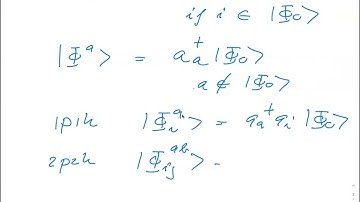 if i ∈ |Φ₀⟩
|Φᵃ⟩ = aₐ⁺ |Φ₀⟩
a ∉ |Φ₀⟩
1p1h |Φᵢᵃ⟩ = aₐ⁺ aᵢ |Φ₀⟩
2p2h |Φᵢⱼᵃᵇ⟩ =